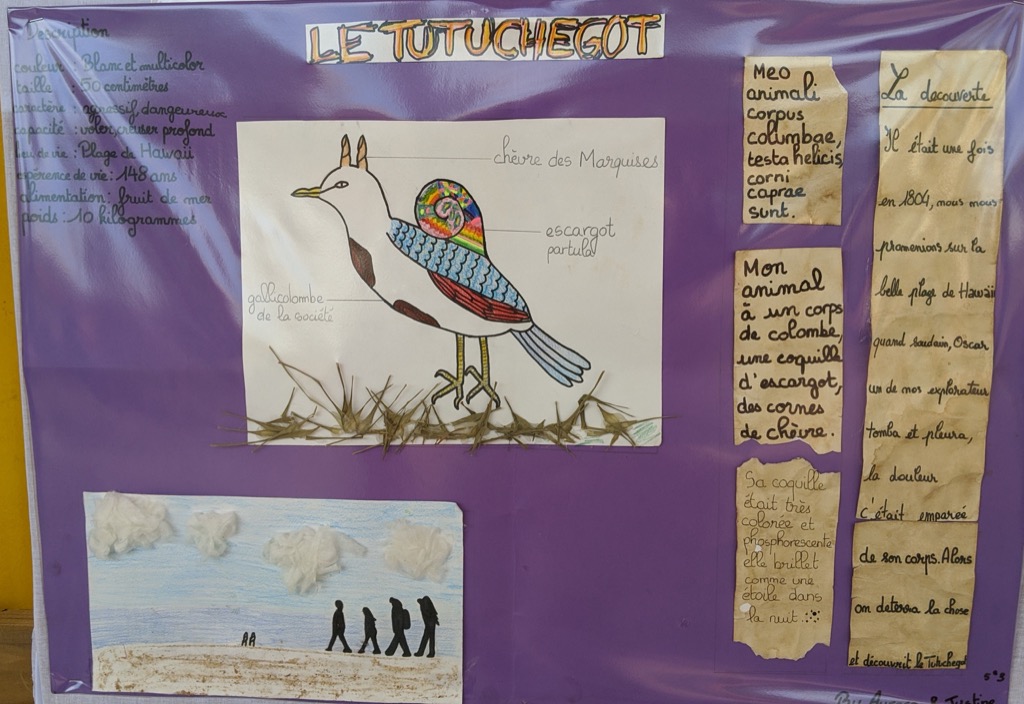 LE TUTUCHEGOT
Description
couleur : Blanc et multicolor
taille : 50 centimètres
caractère : agressif, dangeureux
capacité : voler, creuser profond
lieu de vie : Plage de Hawaii
espérence de vie : 148 ans
alimentation : fruit de mer
poids : 10 kilogrammes
chèvre des Marquises
escargot
partula
gallicolombe
de la société
Meo
animali
corpus
columbae,
testa helicis,
corni
caprae
sunt.
Mon
animal
à un corps
de colombe,
une coquille
d'escargot,
des cornes
de chèvre.
Sa coquille
était très
colorée et
phosphorescente
elle brillet
comme une
étoile dans
la nuit
La decouverte
Il était une fois
en 1804, nous nous
promenions sur la
belle plage de Hawaii
quand soudain, Oscar
un de nos explorateur
tomba et pleura,
la douleur
c'était emparée
de son corps. Alors
on deterra la chose
et découvrit le Tutuchegot
5°3
By & Justine